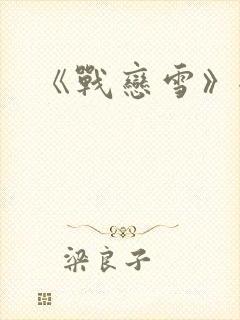 《戰戀雪》
梁良子